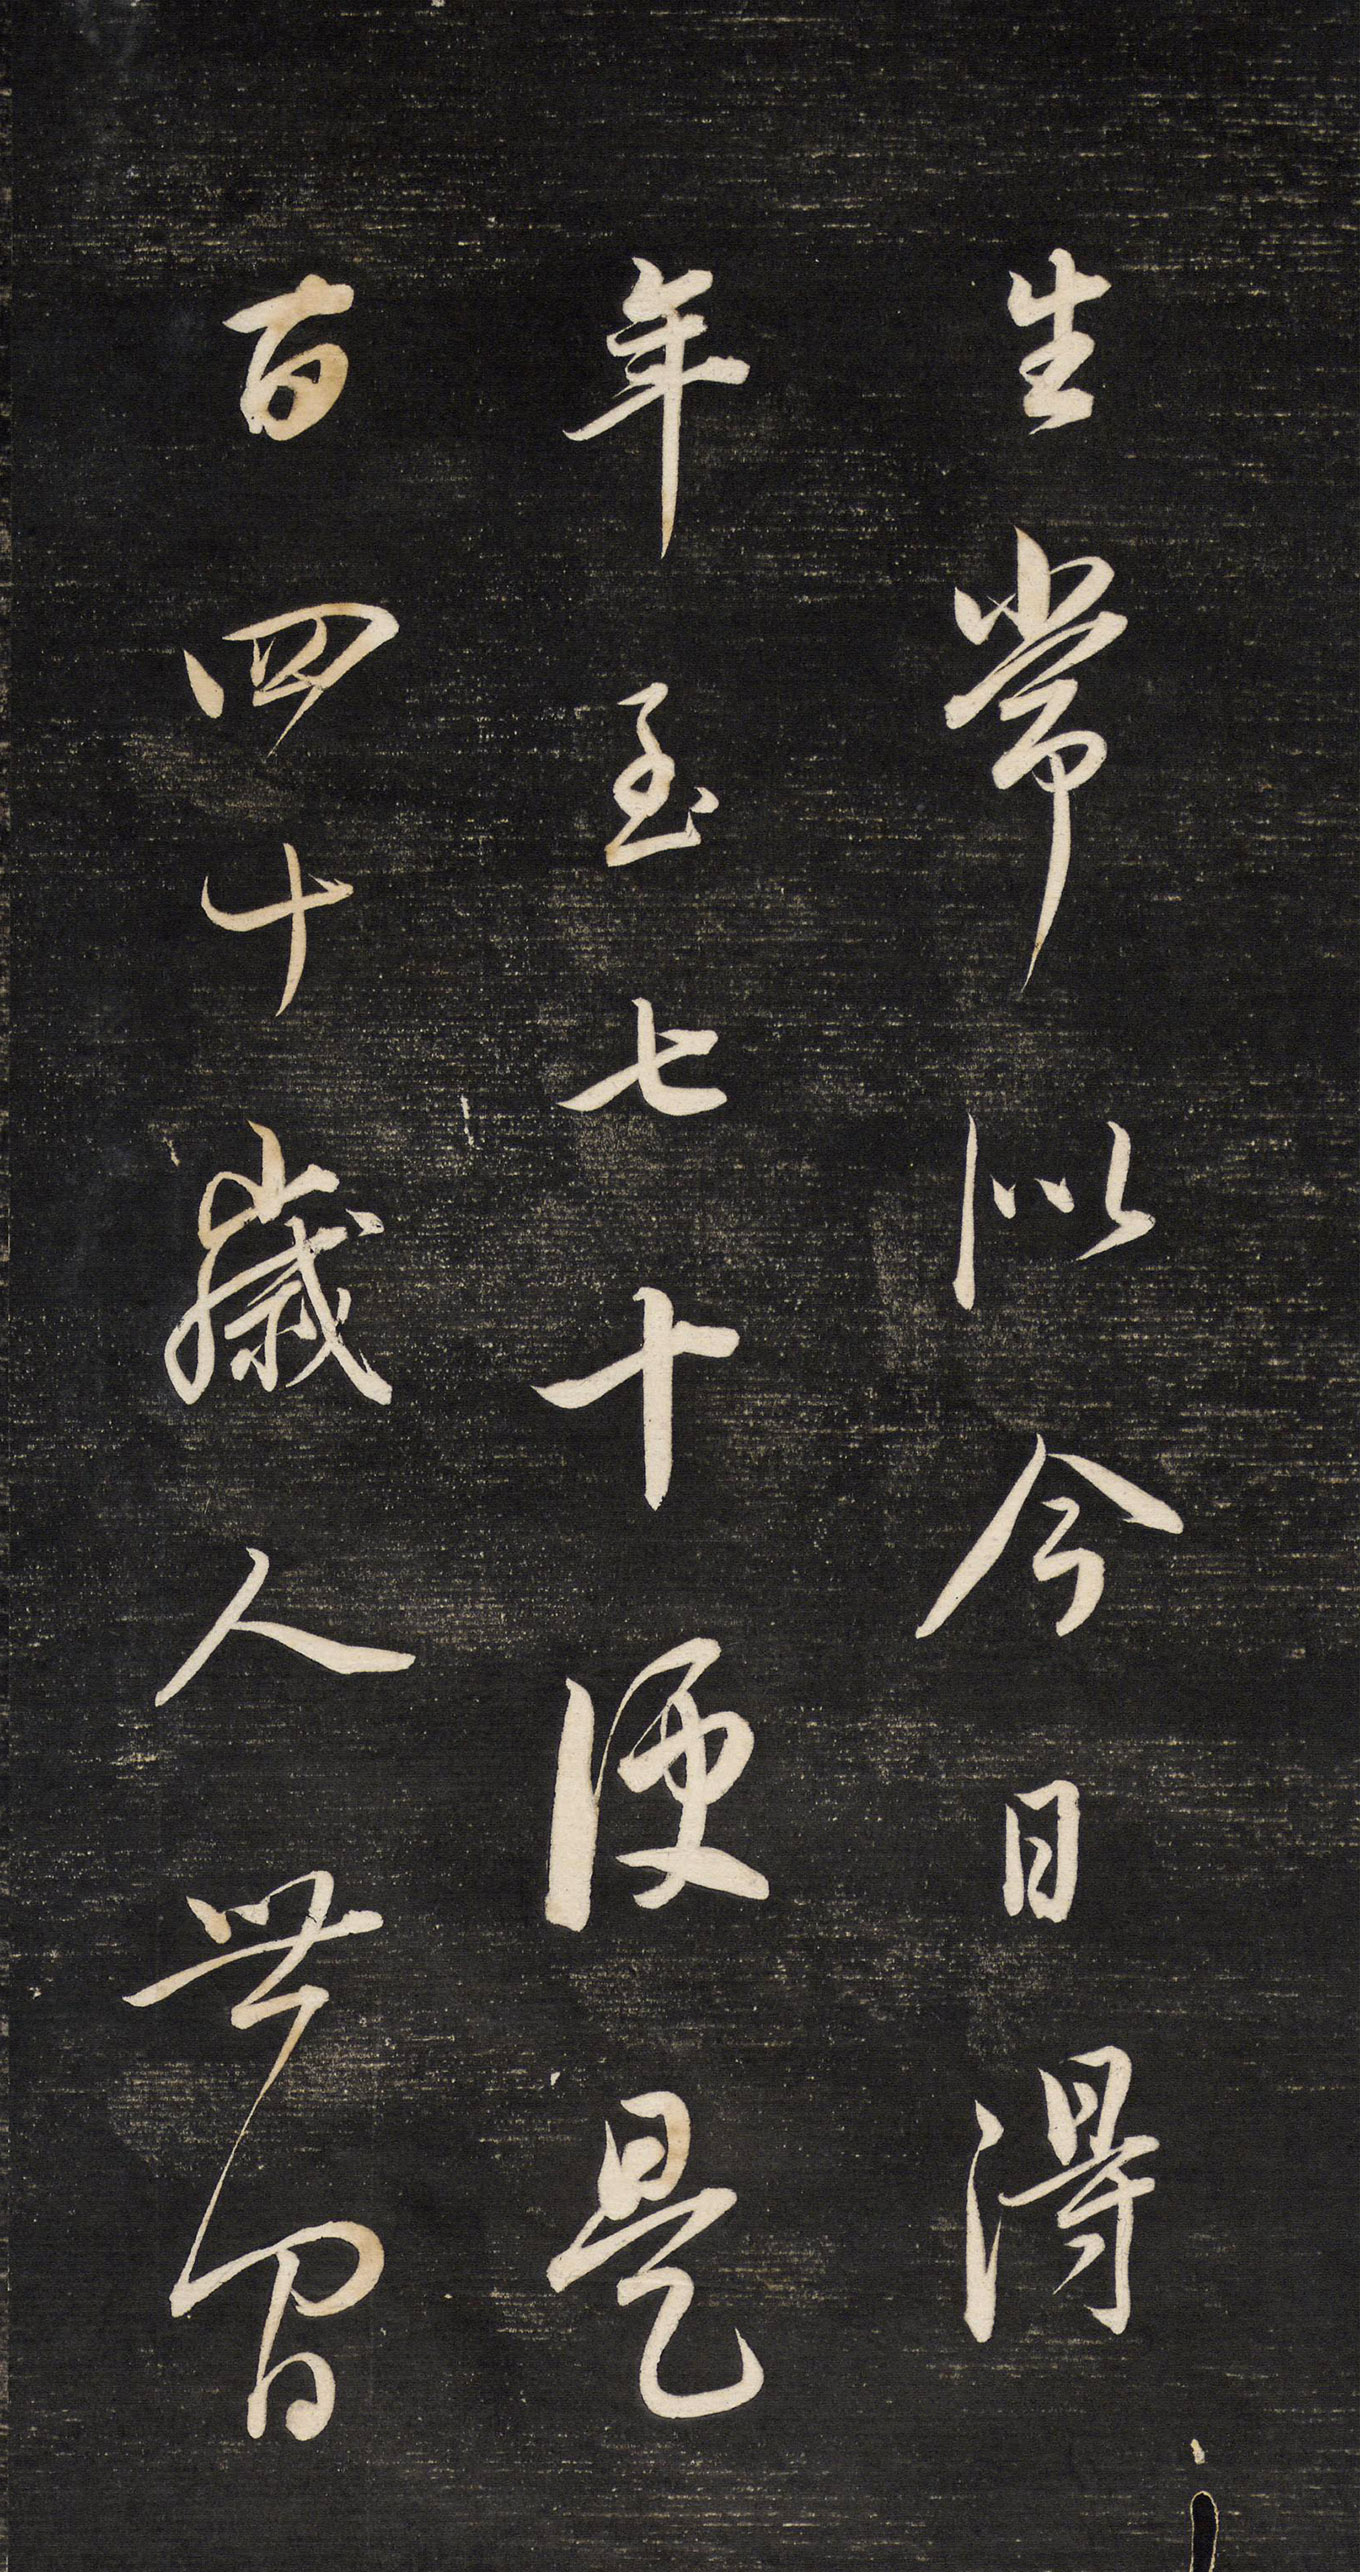 生常以今日得
年至七十便是
百四十歲人無間